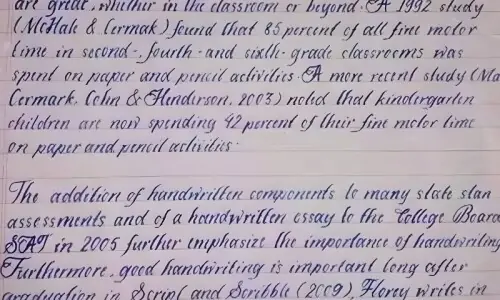 are great, whether in the classroom or beyond. A 1992 study
(McHale & Cermak) found that 85 percent of all fine motor
time in second-, fourth- and sixth- grade classrooms was
spent on paper and pencil activities. A more recent study (Ma
Cermark, Cohn & Henderson, 2003) noted that kindergarten
children are now spending 42 percent of their fine motor time
on paper and pencil activities.
The addition of handwritten components to many state stan
assessments and of a handwritten essay to the College Board
SAT in 2005 further emphasize the importance of handwriting
Furthermore, good handwriting is important long after
graduation in Script and Scribble (2009), Florey writes in